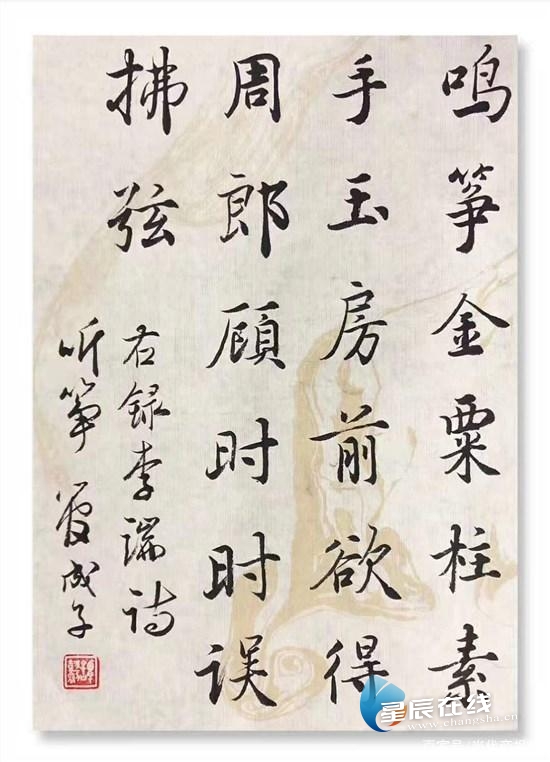 鸣筝金粟柱素
手玉房前欲得
周郎顾时时误
拂弦
右录李端诗
听筝 成子
星辰在线
www.changsha.cn